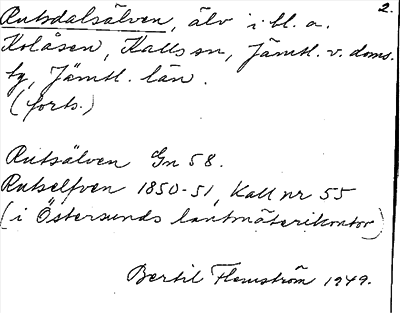 Rutsdalsälven, älv i bl. a. 2.
Kolåsen, Kalls sn, Jämtl. v. doms.
tg, Jämtl. län.
(forts.)
Rutsälven Gn 58.
Rutselfven 1850-51, Kall nr 55
(i Östersunds lantmäterikontor)
Bertil Flemström 1949.